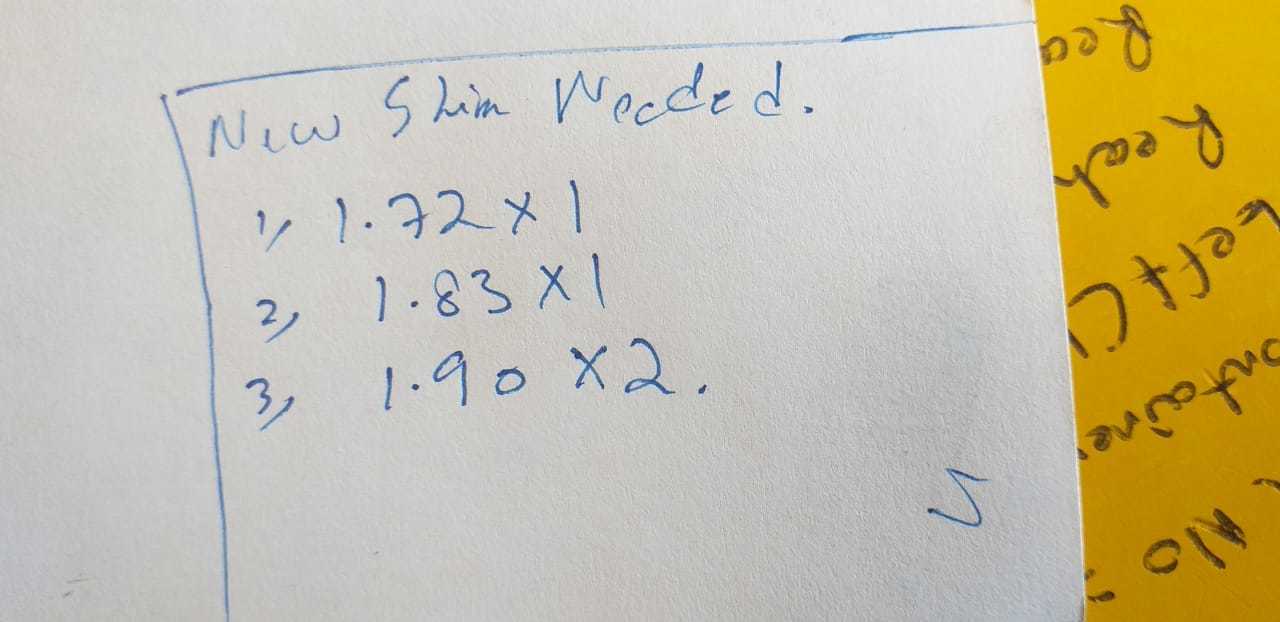 New Shim Needed.
1, 1.72 x 1
2, 1.83 x 1
3, 1.90 x 2.
Reah
Left
No :